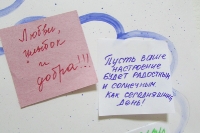 Любви,
улыбок
и
добра!!!
Пусть ваше
настроение
будет радостным
и солнечным
как сегодняшний
день!